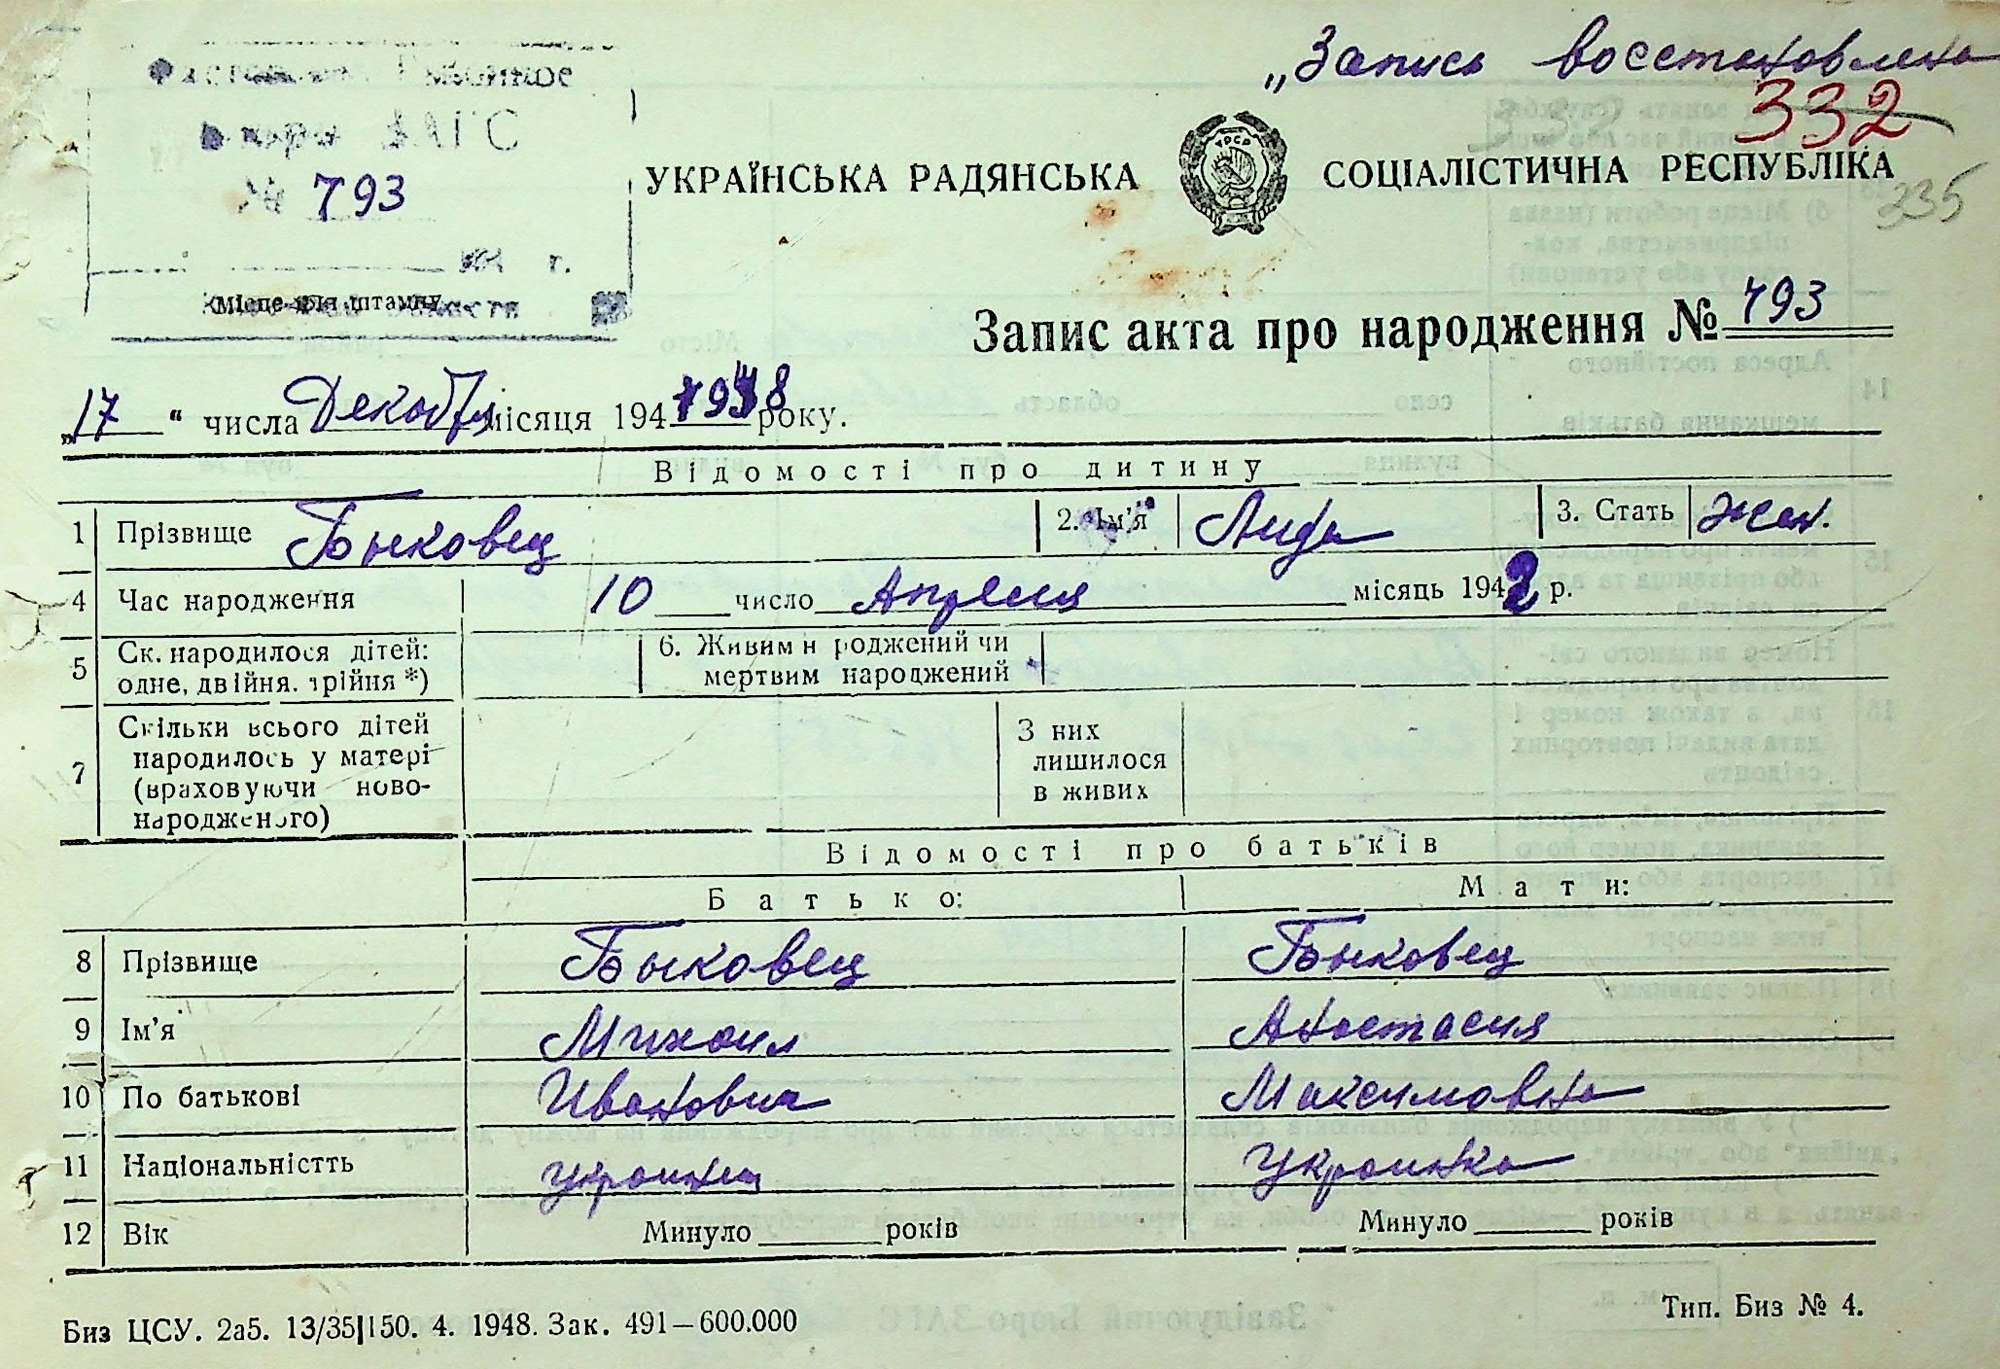 „Запись восстановлена
332
Районное
Бюро ЗАГС
№ 793
г.
Місце для штампу
УКРАЇНСЬКА РАДЯНСЬКА СОЦІАЛІСТИЧНА РЕСПУБЛІКА
УРСР
335
Запис акта про народження № 793
„17" числа Декабря місяця 194 1948 року.
Відомості про дитину
1 Прізвище Быковец 2. Ім'я Лида 3. Стать жен.
4 Час народження 10 число Апреля місяць 1942 р.
5 Ск. народилося дітей: одне, двійня, трійня *) 6. Живим народжений чи мертвим народжений
7 Скільки всього дітей народилось у матері (враховуючи новонародженого) З них лишилося в живих
Відомості про батьків
Батько: Мати:
8 Прізвище Быковец Быковец
9 Ім'я Михаил Анастасия
10 По батькові Иванович Максимовна
11 Національністть украинец Украинка
12 Вік Минуло ____ років Минуло ____ років
Биз ЦСУ. 2а5. 13/35|150. 4. 1948. Зак. 491—600.000
Тип. Биз № 4.